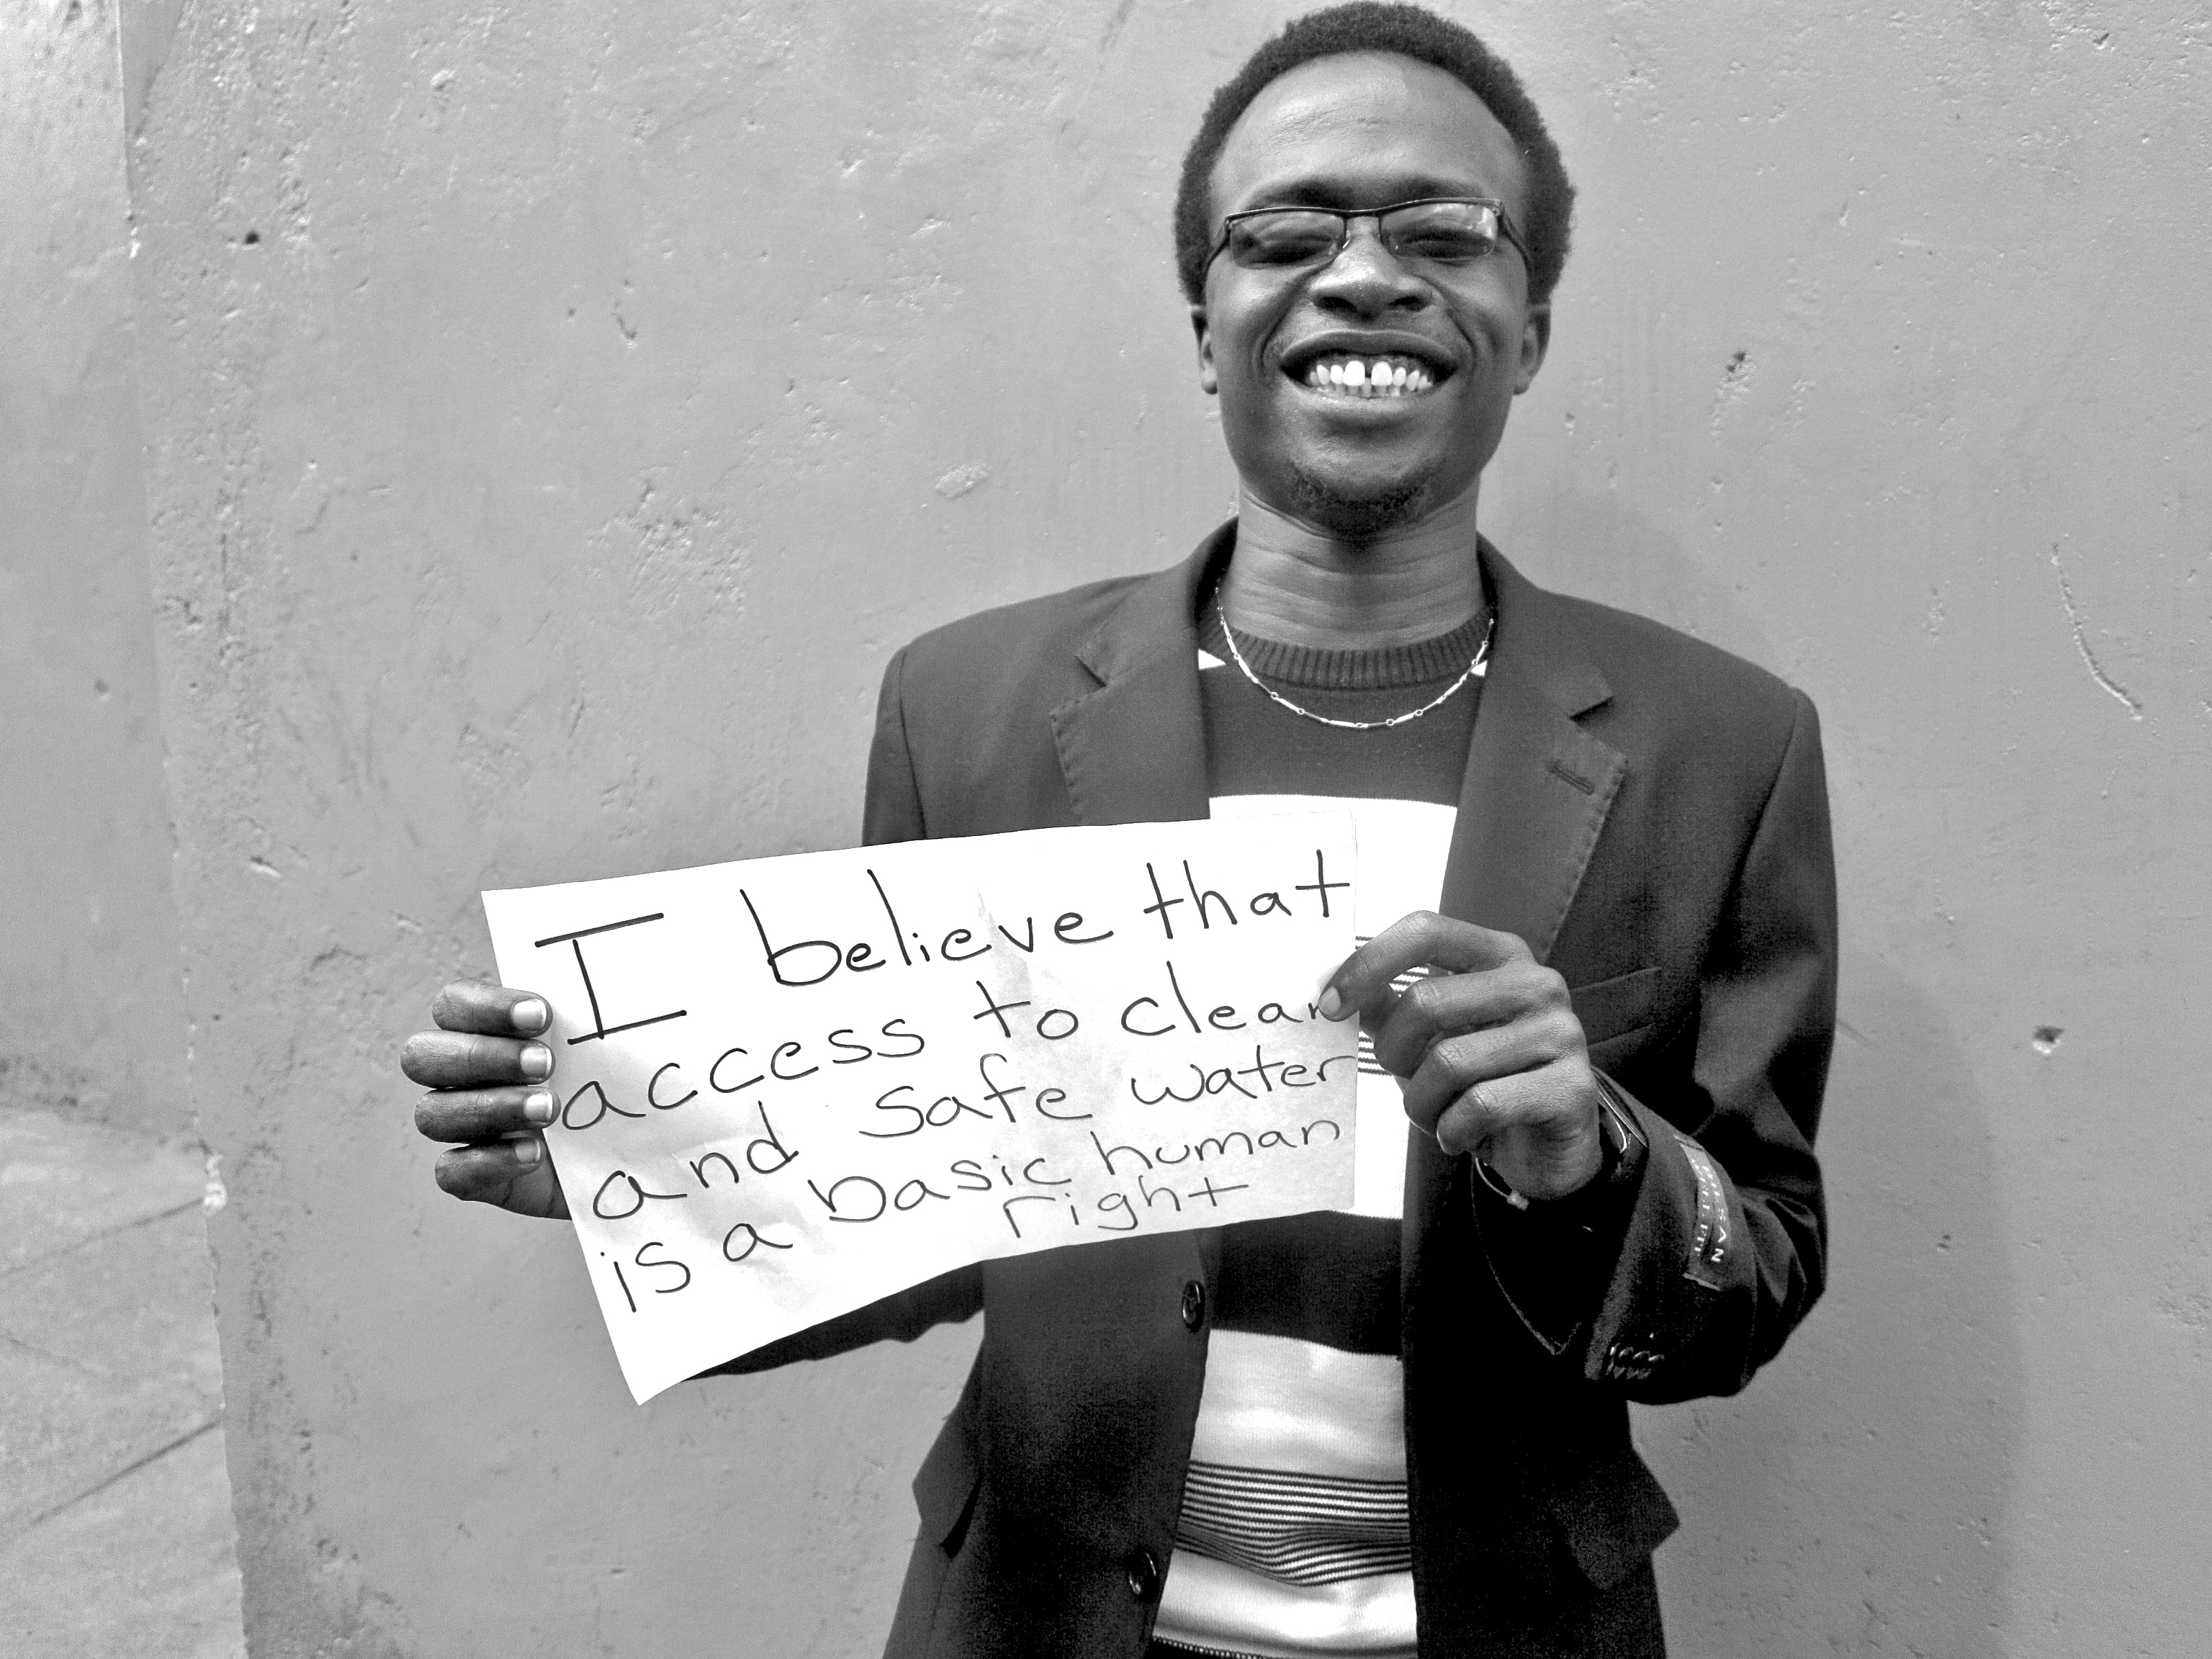 I believe that
access to clean
and safe water
is a basic human
right